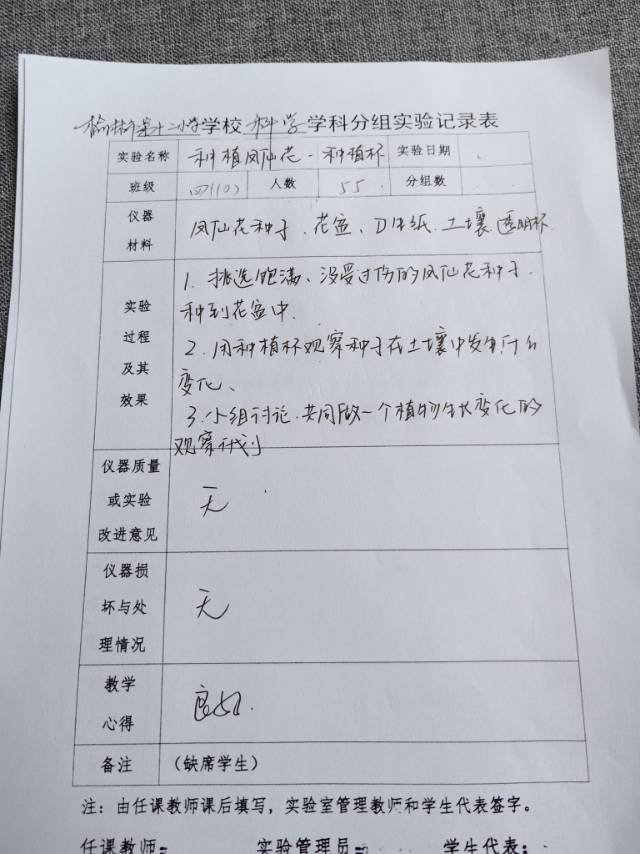 榆树第十二小学学校 科学学科分组实验记录表
实验名称 种植凤仙花-种植杯 实验日期
班级 四(10) 人数 55 分组数
仪器材料 凤仙花种子、花盆、卫生纸、土壤 透明杯
实验过程及其效果
1. 挑选饱满、没受过伤的凤仙花种子.
种到花盆中.
2. 用种植杯观察种子在土壤中发生什么
变化、
3. 小组讨论.共同做一个植物生长变化的
观察计划
仪器质量或实验改进意见 无
仪器损坏与处理情况 无
教学心得 良好.
备注 (缺席学生)
注：由任课教师课后填写，实验室管理教师和学生代表签字。
任课教师： 实验管理员： 学生代表：